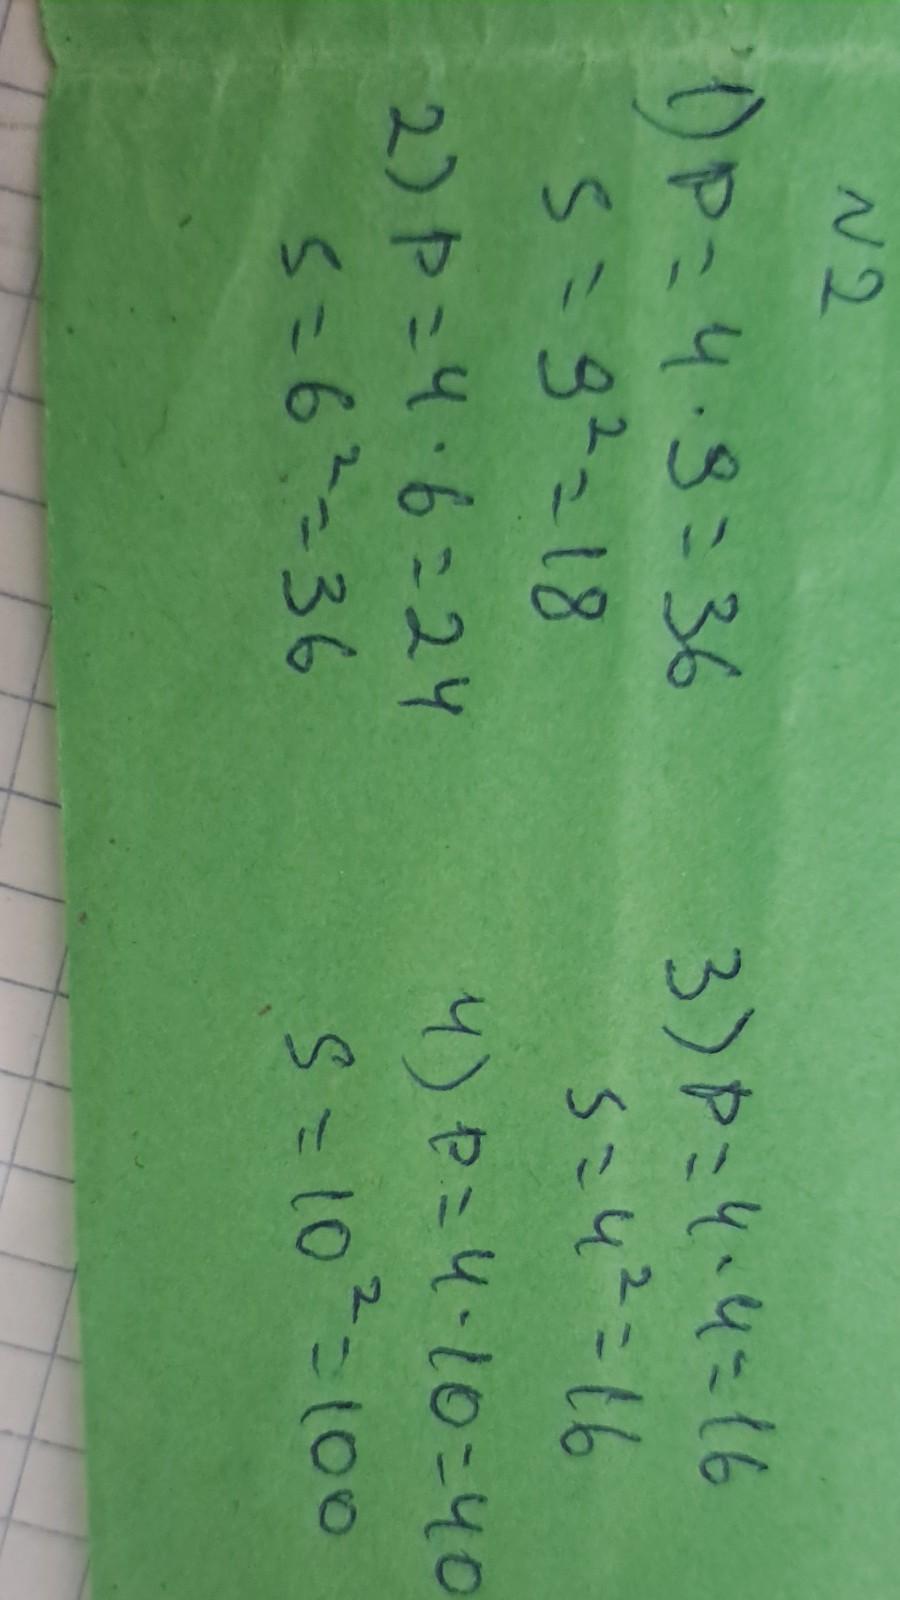 №2
1) P = 4 · 9 = 36
S = 9² = 18
2) P = 4 · 6 = 24
S = 6² = 36
3) P = 4 · 4 = 16
S = 4² = 16
4) P = 4 · 10 = 40
S = 10² = 100